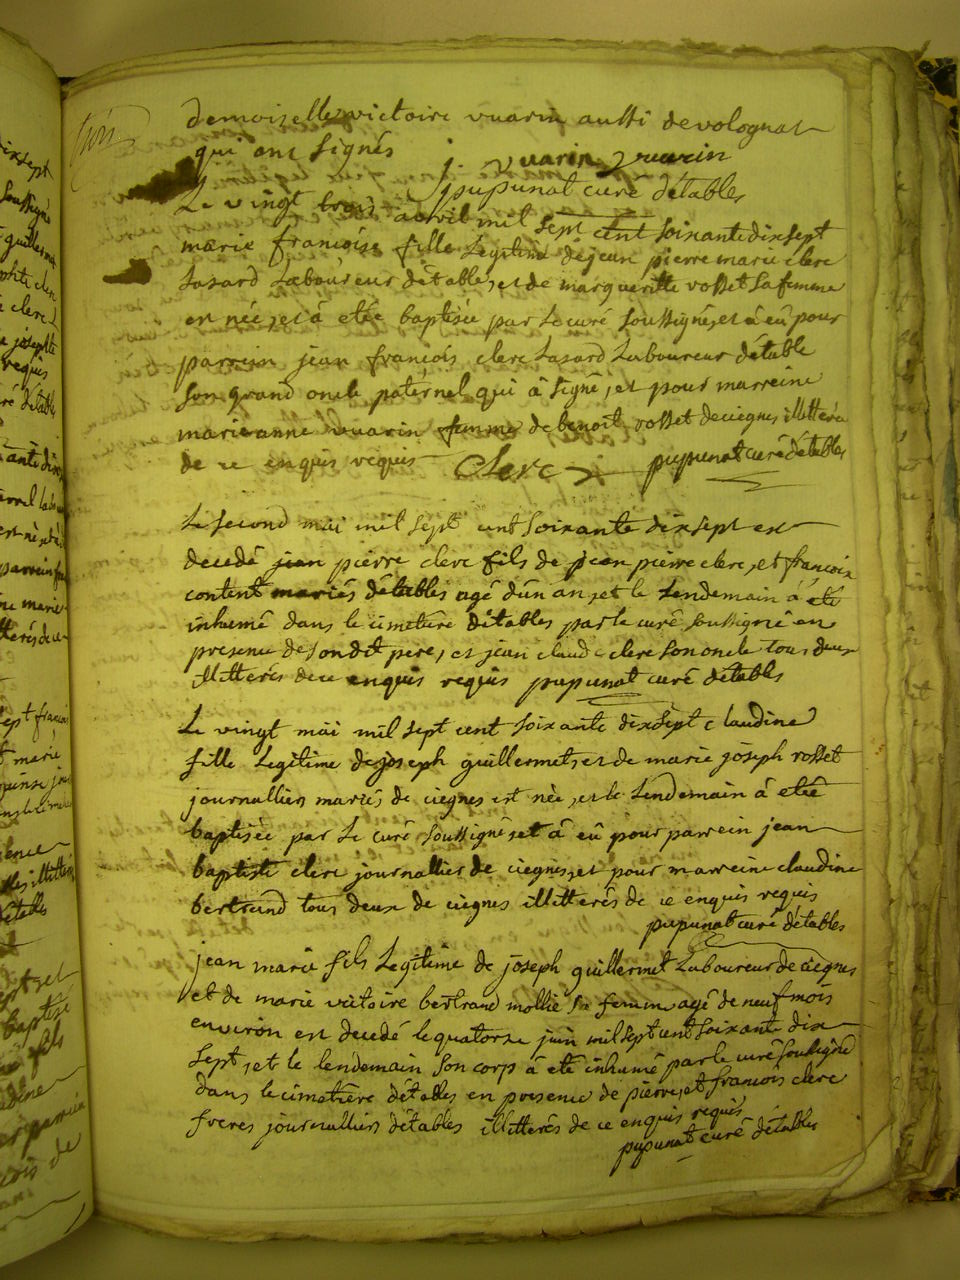 trois
demoiselle victoire vuarin aussi de volognat
qui ont signés j. vuarin vuarin
pupunat curé détables
Le vingt trois avril mil sept cent soixante dix sept
marie francoise fille Legitime de jean pierre marie clerc
Lasard Laboureur détables, et de margueritte rosset sa femme
en née, et à etée baptisée par Le curé soussigné, et à eû pour
parrein jean francois clerc Lasard Laboureur détable
son grand oncle paternel qui à signé, et pour marreine
marieanne vuarin femme de benoit rosset deciegnes illitteré
de ce enquis requis Clerc pupunat curé détables
Le second mai mil sept cent soixante dix sept est
decedé jean pierre clerc fils de jean pierre clerc, et francoise
content mariés détables agé d'un an, et le Lendemain à été
inhumé dans le cimetiere détables par le curé soussigné en
presence de son dit pere, et jean claude clerc son oncle tous deux
illitterés de ce enquis requis pupunat curé détables
Le vingt mai mil sept cent soixante dix sept claudine
fille Legitime de joseph guillermet, et de marie joseph rosset
journalliers mariés de ciegnes est née, et le Lendemain à etée
baptisée par Le curé soussigné, et à eû pour parrein jean
baptiste clerc journallier de ciegnes, et pour marreine claudine
bertrand tous deux de ciegnes illitterés de ce enquis requis
pupunat curé détables
jean marie fils Legitime de joseph guillermet Laboureur de ciegnes
et de marie victoire bertrand mollie sa femme, agé de neuf mois
environ est decedé le quatorze juin mil sept cent soixante dix
sept, et le lendemain son corp à été inhumé par le curé soussigné
dans le cimetière détables en presence de pierre, et francois clerc
freres journalliers détables illitterés de ce enquis requis
pupunat curé détables